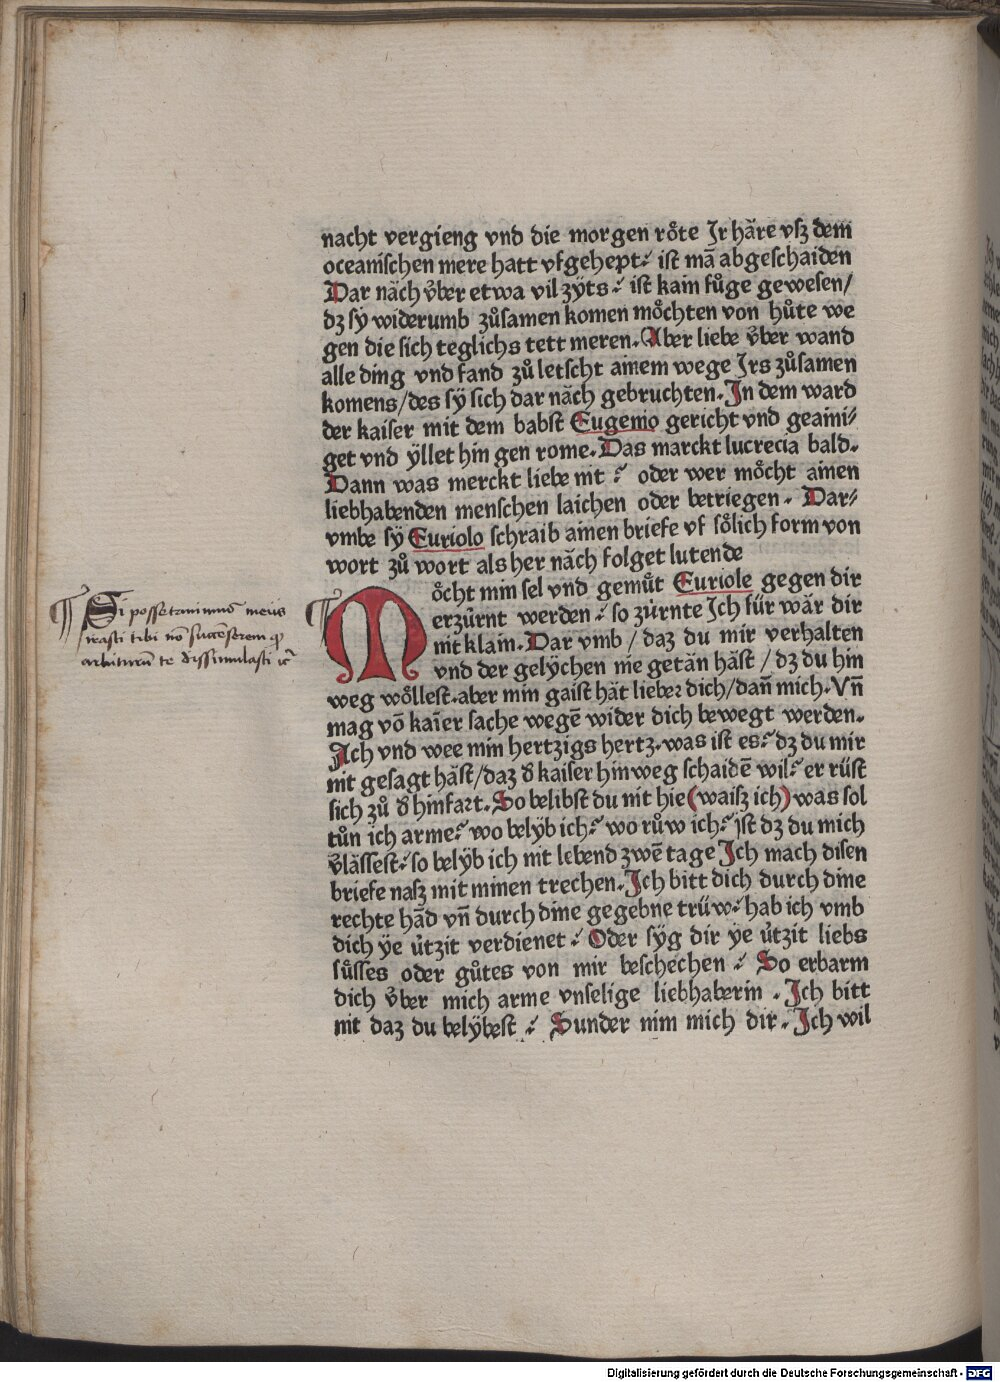 nacht vergieng vnd die morgen röte Jr häre vſz dem
oceaniſchen mere hatt vfgehept·⁊ iſt mā abgeſchaiden
Dar näch v̊ber etwa vil zÿts·⁊ iſt kain fůge geweſen/
dz ſÿ widerumb zůſamen komen möchten von hůte we
gen die ſich teglichs tett meren. Aber liebe v̊ber wand
alle ding vnd fand zů letſcht ainem wege Jrs zůſamen
komens/des ſÿ ſich dar näch gebruchten. Jn dem ward
der kaiſer mit dem babſt Eugenio gericht vnd geaini⸗
get vnd ÿllet hin gen rome. Das marckt lucrecia bald.
Dann was merckt liebe nit ·⁊ oder wer möcht ainen
liebhabenden menſchen laichen oder betriegen. Dar⸗
vmbe ſÿ Euriolo ſchraib ainen briefe vf ſölich form von
wort zů wort als her näch folget lutende
Möcht min ſel vnd gemůt Euriole gegen dir
erzürnt werden·⁊ ſo zürnte Jch für wär dir
nit klain. Dar vmb / daz du mir verhalten
vnd der gelÿchen nie getän häſt / dz du hin
Si posset animus meus
irasti tibi nō succenserem q̄
arbiturū te dissimulasti ꝛc
weg wölleſt. aber min gaiſt hät lieber dich/dañ mich. Vñ
mag vō kaīer ſache wegē wider dich bewegt werden.
Ach vnd wee min hertzigs hertz. was iſt es·⁊ dz du mir
nit geſagt häſt/daz đ kaiſer hinweg ſchaidē wil·⁊ er rüſt
ſich zů đ hinfart. So belibſt du nit hie (waiſz ich) was ſol
tůn ich arme·⁊ wo belÿb ich·⁊ wo růw ich·⁊ jſt dz du mich
v̄läſſeſt·⁊ ſo belÿb ich nit lebend zwē tage Jch mach diſen
briefe naſz mit minen trechen. Jch bitt dich durch dine
rechte hād vñ durch dine gegebne trüw·⁊ hab ich vmb
dich ÿe ützit verdienet·⁊ Oder ſÿg dir ÿe ützit liebs
ſůſſes oder gůtes von mir beſchechen·⁊ So erbarm
dich v̊ber mich arme vnſelige liebhaberin. Jch bitt
nit daz du belÿbeſt·⁊ Sunder nim mich dir. Jch wil
Digitalisierung gefördert durch die Deutsche Forschungsgemeinschaft - DFG